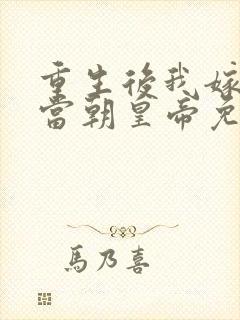 重生後我嫁
當朝皇帝免
馬乃喜